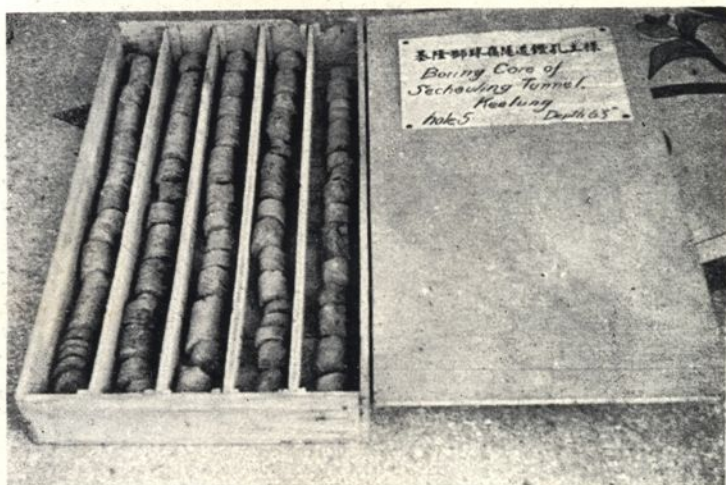 基隆獅球嶺隧道鑽孔土樣
Boring Core of
Sechewling Tunnel.
Keelung
hole 5 Depth 65'